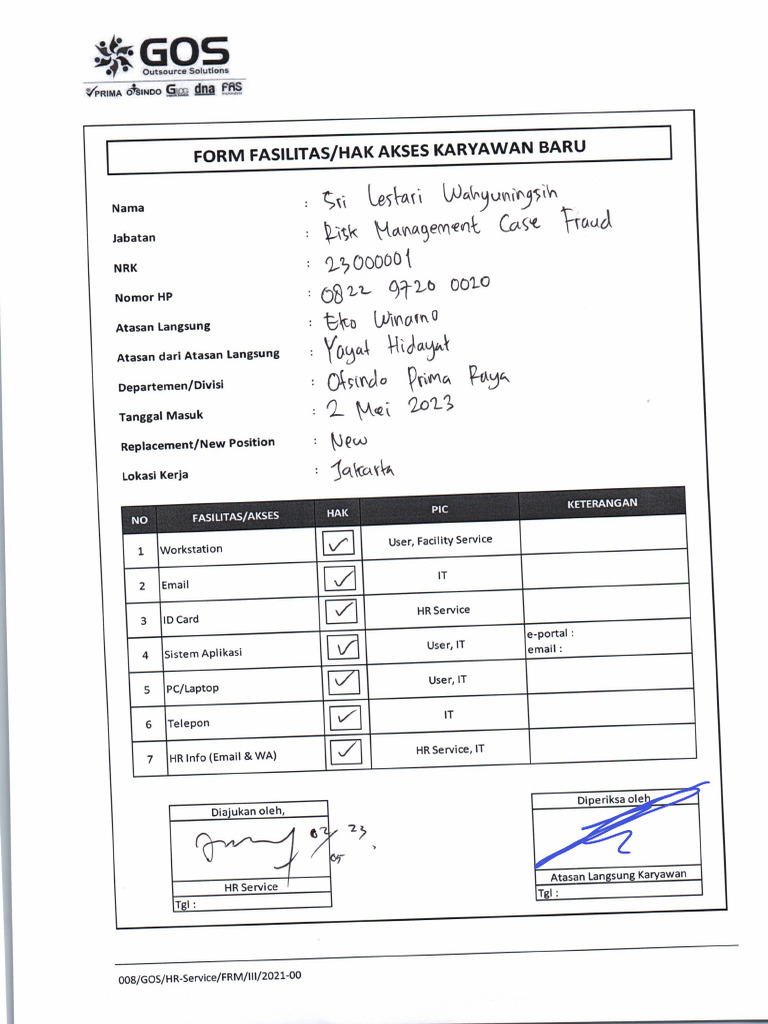 GOS
Outsource Solutions
PRIMA OFSINDO GOS dna FAS
FORM FASILITAS/HAK AKSES KARYAWAN BARU
Nama : Sri Lestari Wahyuningsih
Jabatan : Risk Management Case Fraud
NRK : 23000001
Nomor HP : 0822 9720 0020
Atasan Langsung : Eko Winarno
Atasan dari Atasan Langsung : Yayat Hidayat
Departemen/Divisi : Ofsindo Prima Raya
Tanggal Masuk : 2 Mei 2023
Replacement/New Position : New
Lokasi Kerja : Jakarta
NO FASILITAS/AKSES HAK PIC KETERANGAN
1 Workstation ✓ User, Facility Service
2 Email ✓ IT
3 ID Card ✓ HR Service
4 Sistem Aplikasi ✓ User, IT e-portal :
email :
5 PC/Laptop ✓ User, IT
6 Telepon ✓ IT
7 HR Info (Email & WA) ✓ HR Service, IT
Diajukan oleh, Diperiksa oleh
02/05 23
HR Service Atasan Langsung Karyawan
Tgl : Tgl :
008/GOS/HR-Service/FRM/III/2021-00